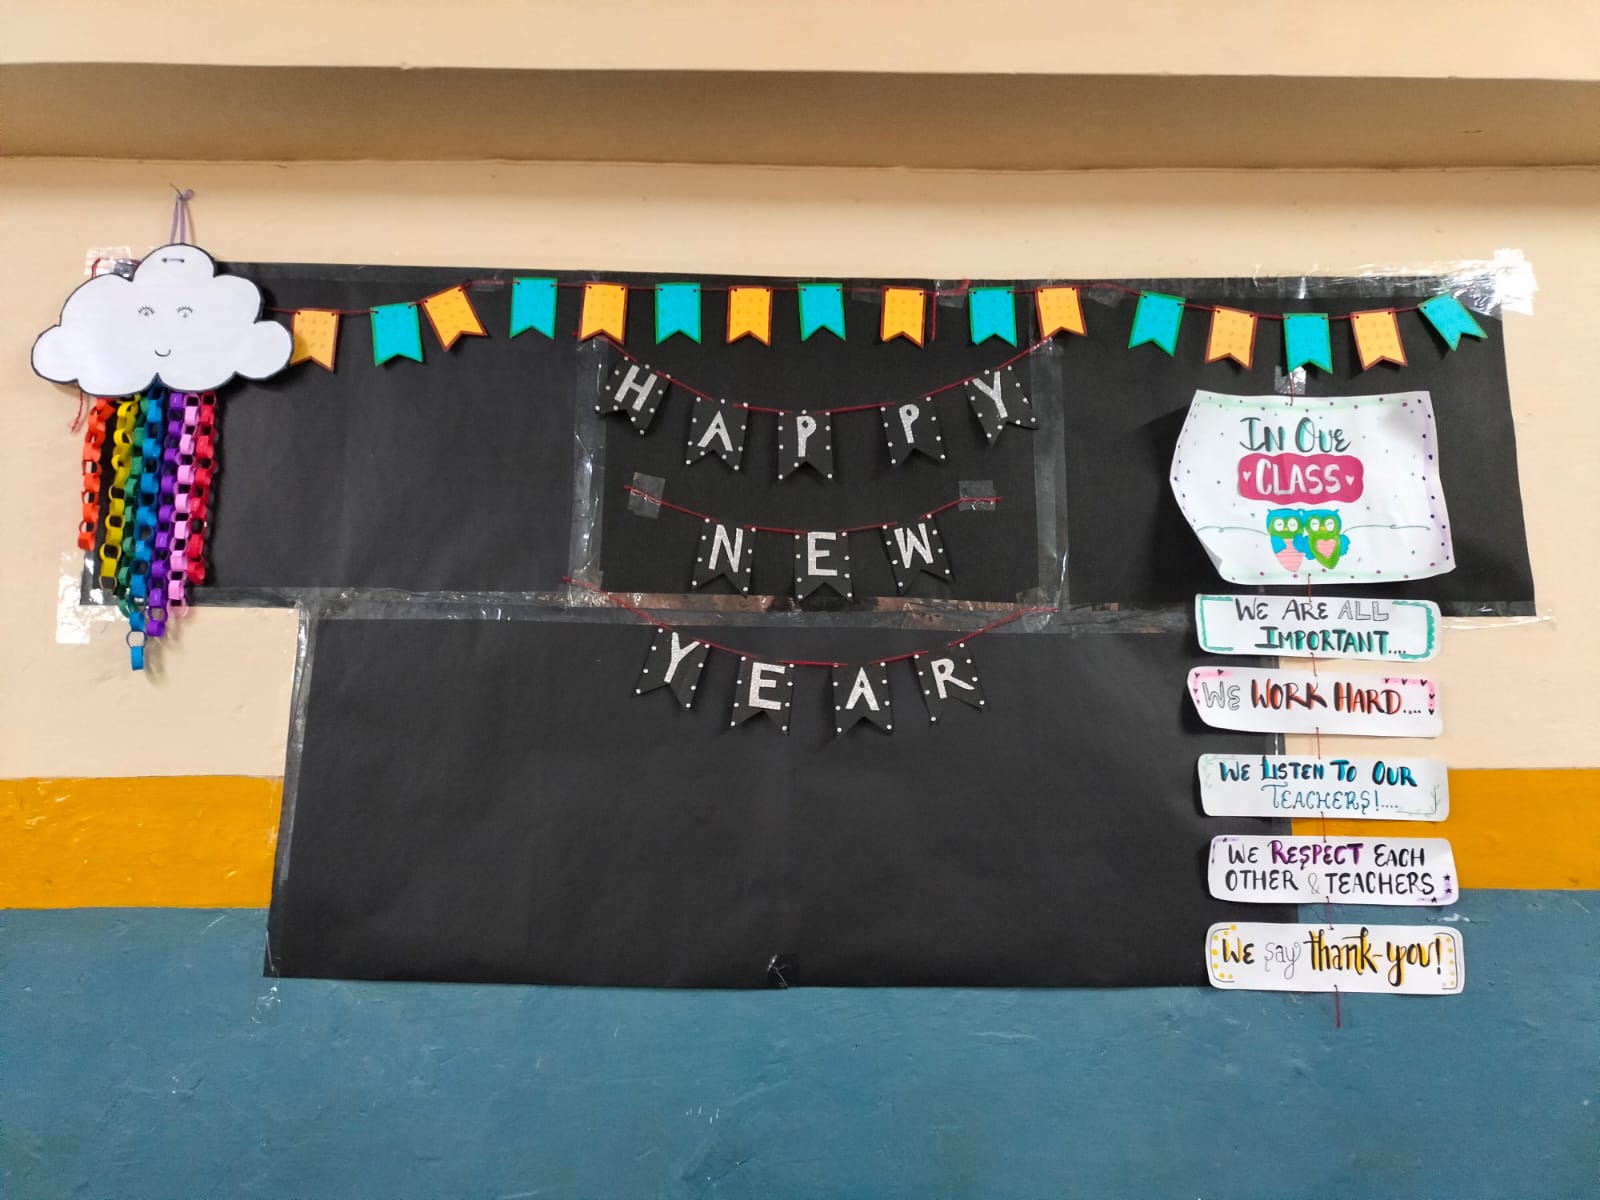 HAPPY
NEW
YEAR
IN OUR
CLASS
WE ARE ALL
IMPORTANT....
WE WORK HARD....
WE LISTEN TO OUR
TEACHERS!....
WE RESPECT EACH
OTHER & TEACHERS
WE say thank-you!